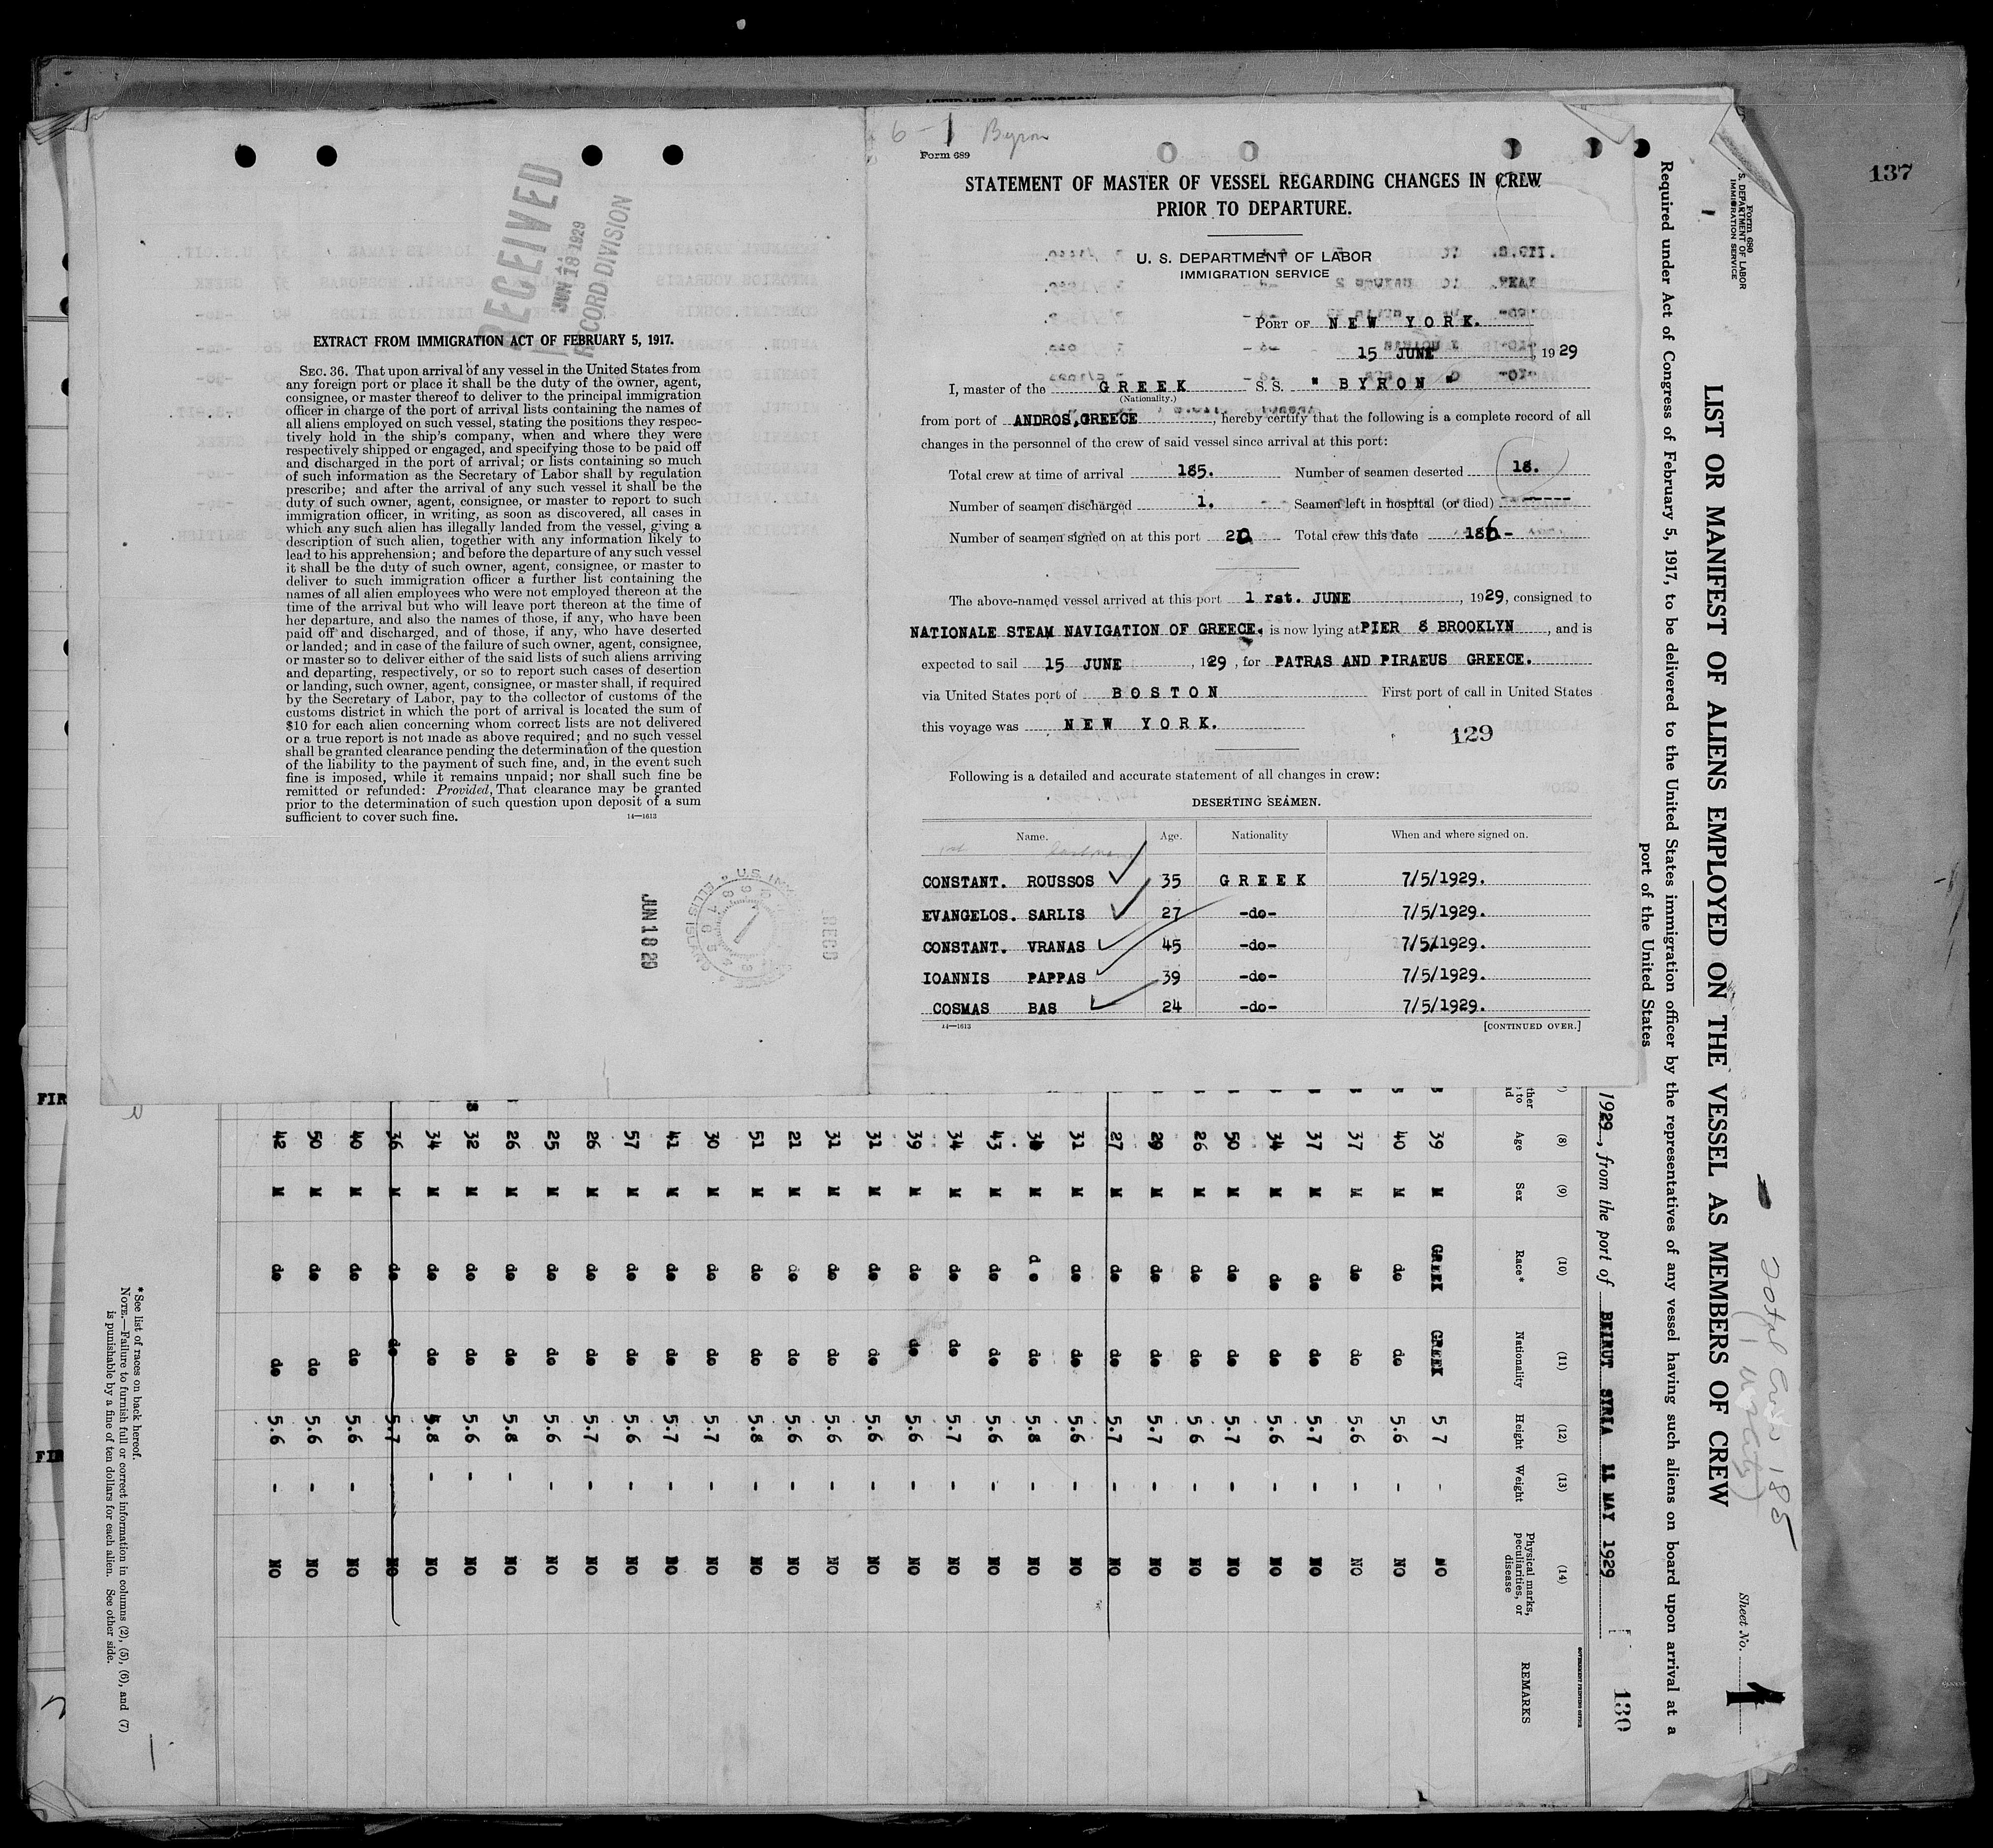 137
6-1 Byron
Form 689
STATEMENT OF MASTER OF VESSEL REGARDING CHANGES IN CREW
PRIOR TO DEPARTURE.
U. S. DEPARTMENT OF LABOR
IMMIGRATION SERVICE
PORT OF NEW YORK.
15 JUNE, 1929
I, master of the GREEK S. S. " BYRON "
(Nationality.)
from port of ANDROS,GREECE, hereby certify that the following is a complete record of all
changes in the personnel of the crew of said vessel since arrival at this port:
Total crew at time of arrival 185. Number of seamen deserted 18.
Number of seamen discharged 1. Seamen left in hospital (or died) -----
Number of seamen signed on at this port 20 Total crew this date 186-
The above-named vessel arrived at this port 1 rst. JUNE, 1929, consigned to
NATIONALE STEAM NAVIGATION OF GREECE. is now lying at PIER 8 BROOKLYN, and is
expected to sail 15 JUNE, 129, for PATRAS AND PIRAEUS GREECE.
via United States port of BOSTON First port of call in United States
this voyage was NEW YORK.
129
Following is a detailed and accurate statement of all changes in crew:
DESERTING SEAMEN.
Name. Age. Nationality When and where signed on.
CONSTANT. ROUSSOS 35 GREEK 7/5/1929.
EVANGELOS. SARLIS 27 -do- 7/5/1929.
CONSTANT. VRANAS 45 -do- 7/5/1929.
IOANNIS PAPPAS 39 -do- 7/5/1929.
COSMAS BAS 24 -do- 7/5/1929.
14—1613 [CONTINUED OVER.]
RECEIVED
JUN 18 1929
RECORD DIVISION
EXTRACT FROM IMMIGRATION ACT OF FEBRUARY 5, 1917.
SEC. 36. That upon arrival of any vessel in the United States from
any foreign port or place it shall be the duty of the owner, agent,
consignee, or master thereof to deliver to the principal immigration
officer in charge of the port of arrival lists containing the names of
all aliens employed on such vessel, stating the positions they respec-
tively hold in the ship's company, when and where they were
respectively shipped or engaged, and specifying those to be paid off
and discharged in the port of arrival; or lists containing so much
of such information as the Secretary of Labor shall by regulation
prescribe; and after the arrival of any such vessel it shall be the
duty of such owner, agent, consignee, or master to report to such
immigration officer, in writing, as soon as discovered, all cases in
which any such alien has illegally landed from the vessel, giving a
description of such alien, together with any information likely to
lead to his apprehension; and before the departure of any such vessel
it shall be the duty of such owner, agent, consignee, or master to
deliver to such immigration officer a further list containing the
names of all alien employees who were not employed thereon at the
time of the arrival but who will leave port thereon at the time of
her departure, and also the names of those, if any, who have been
paid off and discharged, and of those, if any, who have deserted
or landed; and in case of the failure of such owner, agent, consignee,
or master so to deliver either of the said lists of such aliens arriving
and departing, respectively, or so to report such cases of desertion
or landing, such owner, agent, consignee, or master shall, if required
by the Secretary of Labor, pay to the collector of customs of the
customs district in which the port of arrival is located the sum of
$10 for each alien concerning whom correct lists are not delivered
or a true report is not made as above required; and no such vessel
shall be granted clearance pending the determination of the question
of the liability to the payment of such fine, and, in the event such
fine is imposed, while it remains unpaid; nor shall such fine be
remitted or refunded: Provided, That clearance may be granted
prior to the determination of such question upon deposit of a sum
sufficient to cover such fine.
14—1613
JUN 18 29
RECD
Form 680
S. DEPARTMENT OF LABOR
IMMIGRATION SERVICE
Sheet No. 1
Total Crew 185
LIST OR MANIFEST OF ALIENS EMPLOYED ON THE VESSEL AS MEMBERS OF CREW
Required under Act of Congress of February 5, 1917, to be delivered to the United States immigration officer by the representatives of any vessel having such aliens on board upon arrival at a
port of the United States
1929, from the port of BEIRUT SYRIA 11 MAY 1929
130
GOVERNMENT PRINTING OFFICE
(8) (9) (10) (11) (12) (13) (14)
Age Sex Race* Nationality Height Weight Physical marks, peculiarities, or disease REMARKS
39 M GREEK GREEK 5 7 - NO
40 M do do 5.6 - NO
37 M do do 5.6 - NO
37 M do do 5.7 - NO
34 M do do 5.6 - NO
50 M do do 5.7 - NO
26 M do do 5 6 - NO
29 M do do 5.7 - NO
27 M do do 5.7 - NO
31 M do do 5.6 - NO
M do do 5.8 - NO
43 M do do 5.6 - NO
34 M do do 5.7 - NO
39 M do do 5.6 - NO
31 M do do 5.6 - NO
31 M do do 5.6 - NO
21 M do do 5.6 - NO
51 M do do 5.8 - NO
30 M do do 5.7 - NO
41 M do do 5.7 - NO
57 M do do 5.6 - NO
26 M do do 5.7 - NO
25 M do do 5.6 - NO
26 M do do 5.8 - NO
32 M do do 5.6 - NO
34 M do do 5.8 - NO
36 M do do 5.7 NO
40 M do do 5.6 - NO
50 M do do 5.6 - NO
42 M do do 5.6 - NO
*See list of races on back hereof.
NOTE.—Failure to furnish full or correct information in columns (2), (5), (6), and (7)
is punishable by a fine of ten dollars for each alien. See other side.
FIR
FIR